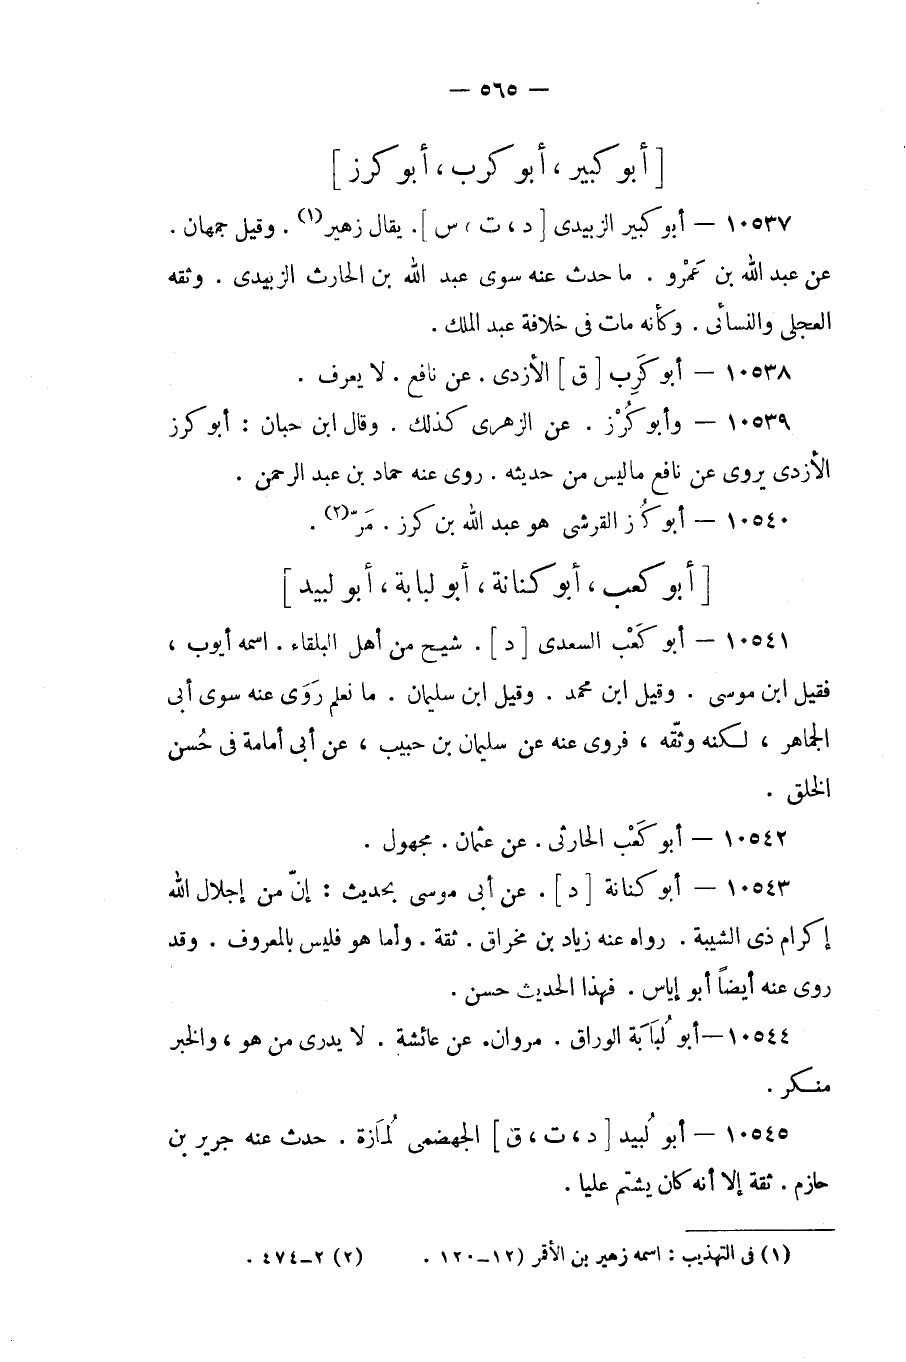 — ٥٦٥ —
[ أبو كبير ، أبو كرب ، أبو كرز ]
١٠٥٣٧ — أبو كبير الزبيدى [ د ، ت ، س ] . يقال زهير (١) . وقيل جمهان .
عن عبد الله بن عَمْرو . ما حدث عنه سوى عبد الله بن الحارث الزبيدى . وثقه
العجلى والنسأنى . وكأنه مات فى خلافة عبد الملك .
١٠٥٣٨ — أبو كَرِب [ ق ] الأزدى . عن نافع . لا يعرف .
١٠٥٣٩ — وأبو كُرْز . عن الزهرى كذلك . وقال ابن حبان : أبو كرز
الأزدى يروى عن نافع ماليس من حديثه . روى عنه حماد بن عبد الرحمن .
١٠٥٤٠ — أبو كُرز القرشى هو عبد الله بن كرز . مَرّ (٢) .
[ أبو كعب ، أبو كنانة ، أبو لبابة ، أبو لبيد ]
١٠٥٤١ — أبو كَعْب السعدى [ د ] . شيخ من أهل البلقاء . اسمه أيوب ،
فقيل ابن موسى . وقيل ابن محمد . وقيل ابن سليمان . ما نعلم رَوَى عنه سوى أبى
الجماهر ، لكنه وثّقه ، فروى عنه عن سليمان بن حبيب ، عن أبى أمامة فى حُسن
الخلق .
١٠٥٤٢ — أبو كَعْب الحارثى . عن عثمان . مجهول .
١٠٥٤٣ — أبو كنانة [ د ] . عن أبى موسى بحديث : إنّ من إجلال الله
إكرام ذى الشيبة . رواه عنه زياد بن مخراق . ثقة . وأما هو فليس بالمعروف . وقد
روى عنه أيضاً أبو إياس . فهذا الحديث حسن .
١٠٥٤٤ — أبو لُبَابَة الوراق . مروان . عن عائشة . لا يدرى من هو ، والخبر
منكر .
١٠٥٤٥ — أبو لُبيد [ د ، ت ، ق ] الجهضمى لُمَازة . حدث عنه جرير بن
حازم . ثقة إلا أنه كان يشتم عليا .
(١) فى التهذيب : اسمه زهير بن الأقمر (١٢–١٢٠ . (٢) ٢–٤٧٤ .